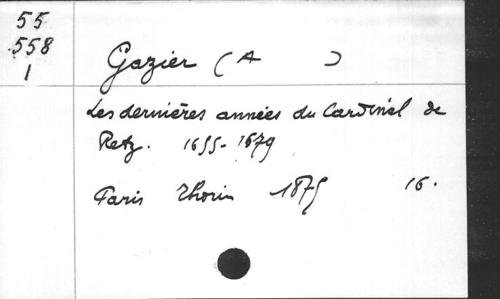 55
558
1
Gazier (A )
Les dernières années du Cardinal de
Retz. 1655-1679
Paris Thorin 1875 16.